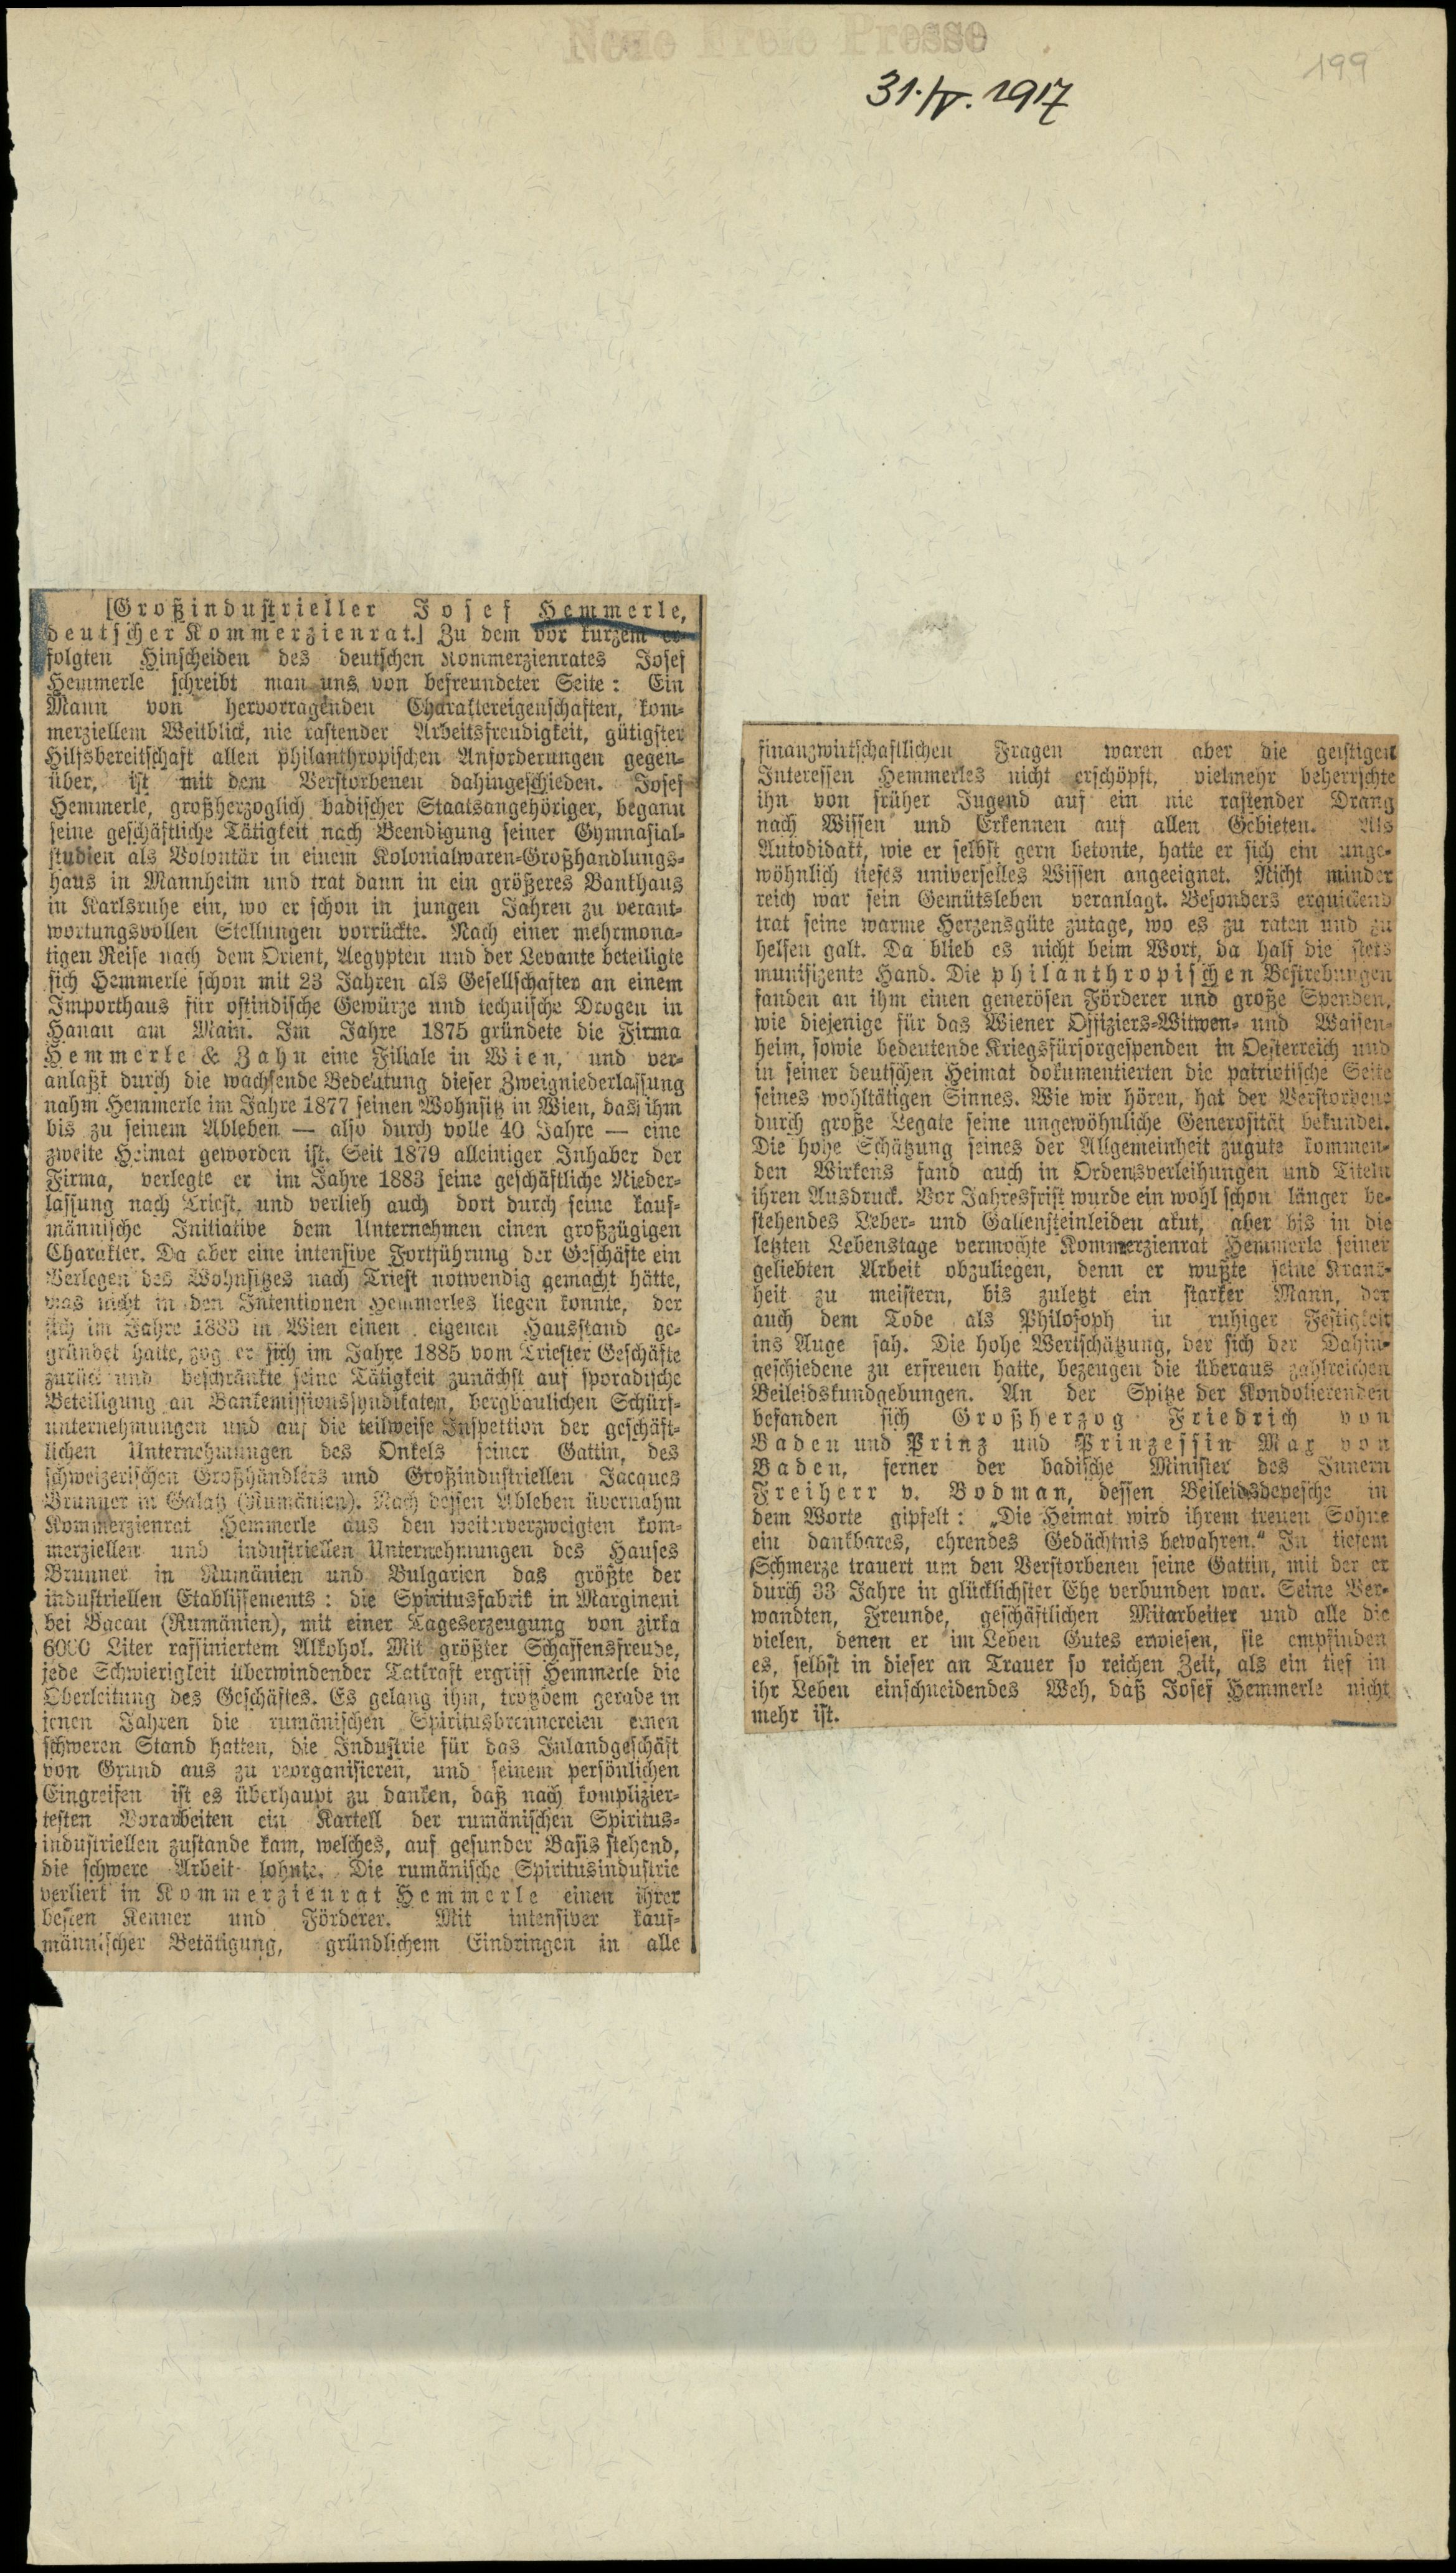 Neue Freie Presse
199
31. IV. 1917
[Großindustrieller Josef Hemmerle,
deutscher Kommerzienrat.] Zu dem vor kurzem er-
folgten Hinscheiden des deutschen Kommerzienrates Josef
Hemmerle schreibt man uns von befreundeter Seite: Ein
Mann von hervorragenden Charaktereigenschaften, kom-
merziellem Weitblick, nie rastender Arbeitsfreudigkeit, gütigster
Hilfsbereitschaft allen philanthropischen Anforderungen gegen-
über, ist mit dem Verstorbenen dahingeschieden. Josef
Hemmerle, großherzoglich badischer Staatsangehöriger, begann
seine geschäftliche Tätigkeit nach Beendigung seiner Gymnasial-
studien als Volontär in einem Kolonialwaren-Großhandlungs-
haus in Mannheim und trat dann in ein größeres Bankhaus
in Karlsruhe ein, wo er schon in jungen Jahren zu verant-
wortungsvollen Stellungen vorrückte. Nach einer mehrmona-
tigen Reise nach dem Orient, Aegypten und der Levante beteiligte
sich Hemmerle schon mit 23 Jahren als Gesellschafter an einem
Importhaus für ostindische Gewürze und technische Drogen in
Hanau am Main. Im Jahre 1875 gründete die Firma
Hemmerle & Zahn eine Filiale in Wien, und ver-
anlaßt durch die wachsende Bedeutung dieser Zweigniederlassung
nahm Hemmerle im Jahre 1877 seinen Wohnsitz in Wien, das ihm
bis zu seinem Ableben — also durch volle 40 Jahre — eine
zweite Heimat geworden ist. Seit 1879 alleiniger Inhaber der
Firma, verlegte er im Jahre 1883 seine geschäftliche Nieder-
lassung nach Triest, und verlieh auch dort durch seine kauf-
männische Initiative dem Unternehmen einen großzügigen
Charakter. Da aber eine intensive Fortführung der Geschäfte ein
Verlegen des Wohnsitzes nach Triest notwendig gemacht hätte,
was nicht in den Intentionen Hemmerles liegen konnte, der
sich im Jahre 1883 in Wien einen eigenen Hausstand ge-
gründet hatte, zog er sich im Jahre 1885 vom Triester Geschäfte
zurück und beschränkte seine Tätigkeit zunächst auf sporadische
Beteiligung an Bankemissionssyndikaten, bergbaulichen Schürf-
unternehmungen und auf die teilweise Inspektion der geschäft-
lichen Unternehmungen des Onkels seiner Gattin, des
schweizerischen Großhändlers und Großindustriellen Jacques
Brunner in Galatz (Rumänien). Nach dessen Ableben übernahm
Kommerzienrat Hemmerle aus den weitverzweigten kom-
merziellen und industriellen Unternehmungen des Hauses
Brunner in Rumänien und Bulgarien das größte der
industriellen Etablissements: die Spiritusfabrik in Margineni
bei Bacau (Rumänien), mit einer Tageserzeugung von zirka
6000 Liter raffiniertem Alkohol. Mit größter Schaffensfreude,
jede Schwierigkeit überwindender Tatkraft ergriff Hemmerle die
Oberleitung des Geschäftes. Es gelang ihm, trotzdem gerade in
jenen Jahren die rumänischen Spiritusbrennereien einen
schweren Stand hatten, die Industrie für das Inlandgeschäft
von Grund aus zu reorganisieren, und seinem persönlichen
Eingreifen ist es überhaupt zu danken, daß nach komplizier-
testen Vorarbeiten ein Kartell der rumänischen Spiritus-
industriellen zustande kam, welches, auf gesunder Basis stehend,
die schwere Arbeit lohnte. Die rumänische Spiritusindustrie
verliert in Kommerzienrat Hemmerle einen ihrer
besten Kenner und Förderer. Mit intensiver kauf-
männischer Betätigung, gründlichem Eindringen in alle
finanzwirtschaftlichen Fragen waren aber die geistigen
Interessen Hemmerles nicht erschöpft, vielmehr beherrschte
ihn von früher Jugend auf ein nie rastender Drang
nach Wissen und Erkennen auf allen Gebieten. Als
Autodidakt, wie er selbst gern betonte, hatte er sich ein unge-
wöhnlich tiefes universelles Wissen angeeignet. Nicht minder
reich war sein Gemütsleben veranlagt. Besonders erquickend
trat seine warme Herzensgüte zutage, wo es zu raten und zu
helfen galt. Da blieb es nicht beim Wort, da half die stets
munifizente Hand. Die philanthropischen Bestrebungen
fanden an ihm einen generösen Förderer und große Spenden,
wie diejenige für das Wiener Offiziers-Witwen- und Waisen-
heim, sowie bedeutende Kriegsfürsorgespenden in Oesterreich und
in seiner deutschen Heimat dokumentierten die patriotische Seite
seines wohltätigen Sinnes. Wie wir hören, hat der Verstorbene
durch große Legate seine ungewöhnliche Generosität bekundet.
Die hohe Schätzung seines der Allgemeinheit zugute kommen-
den Wirkens fand auch in Ordensverleihungen und Titeln
ihren Ausdruck. Vor Jahresfrist wurde ein wohl schon länger be-
stehendes Leber- und Gallensteinleiden akut, aber bis in die
letzten Lebenstage vermochte Kommerzienrat Hemmerle seiner
geliebten Arbeit obzuliegen, denn er wußte seine Krank-
heit zu meistern, bis zuletzt ein starker Mann, der
auch dem Tode als Philosoph in ruhiger Festigkeit
ins Auge sah. Die hohe Wertschätzung, der sich der Dahin-
geschiedene zu erfreuen hatte, bezeugen die überaus zahlreichen
Beileidskundgebungen. An der Spitze der Kondolierenden
befanden sich Großherzog Friedrich von
Baden und Prinz und Prinzessin Max von
Baden, ferner der badische Minister des Innern
Freiherr v. Bodman, dessen Beileidsdepesche in
dem Worte gipfelt: „Die Heimat wird ihrem treuen Sohne
ein dankbares, ehrendes Gedächtnis bewahren.“ In tiefem
Schmerze trauert um den Verstorbenen seine Gattin, mit der er
durch 33 Jahre in glücklichster Ehe verbunden war. Seine Ver-
wandten, Freunde, geschäftlichen Mitarbeiter und alle die
vielen, denen er im Leben Gutes erwiesen, sie empfinden
es, selbst in dieser an Trauer so reichen Zeit, als ein tief in
ihr Leben einschneidendes Weh, daß Josef Hemmerle nicht
mehr ist.